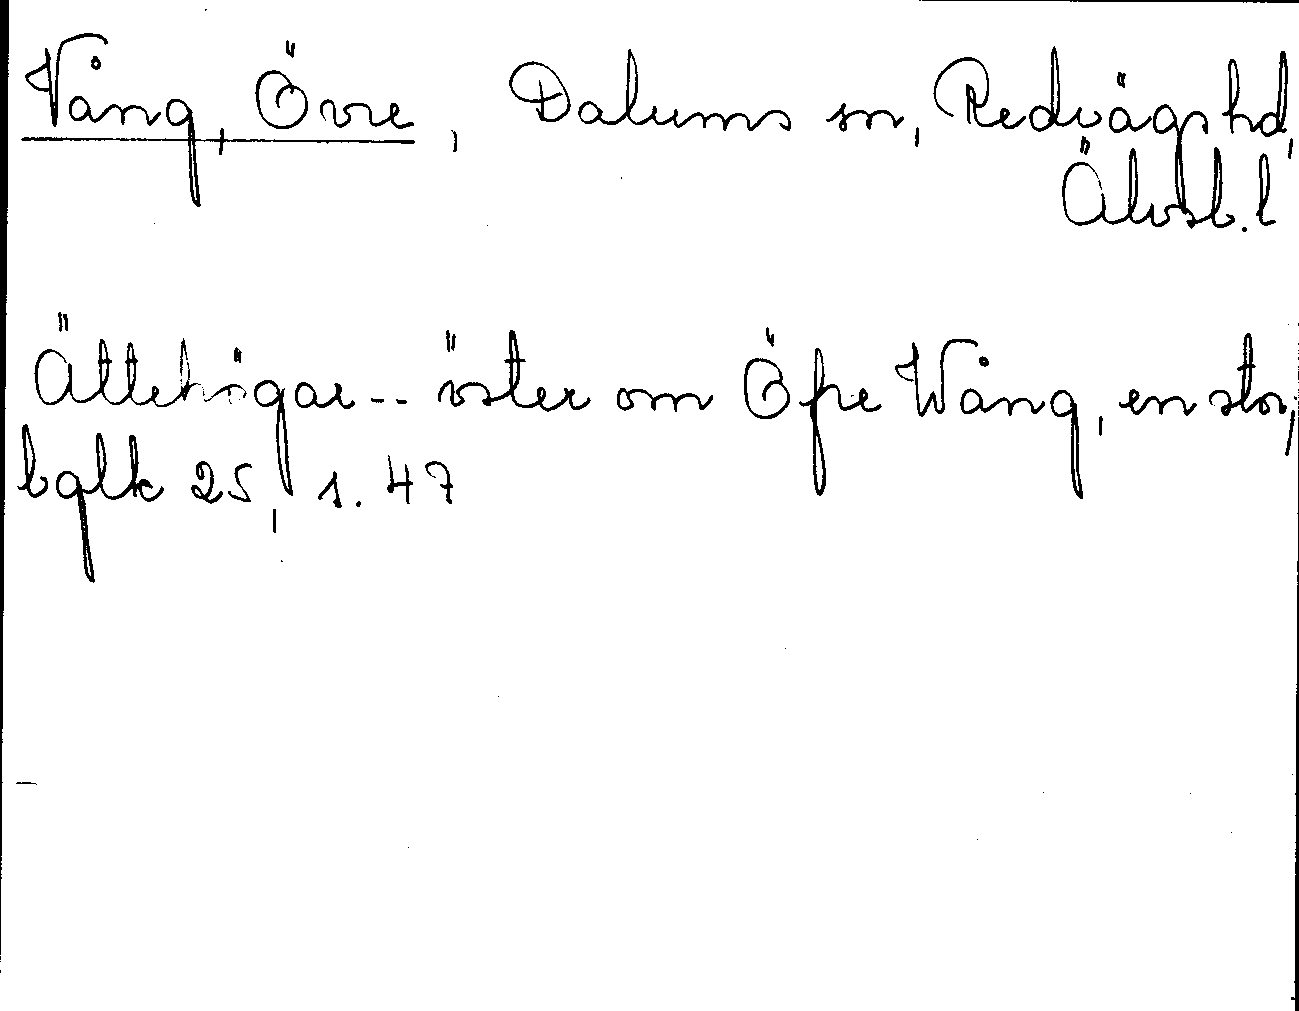 Vång, Övre, Dalums sn, Redvägs hd,
Älvsb. l
Ättehögar -- öster om Öfre Wång, en stor,
bglk 25, s. 47